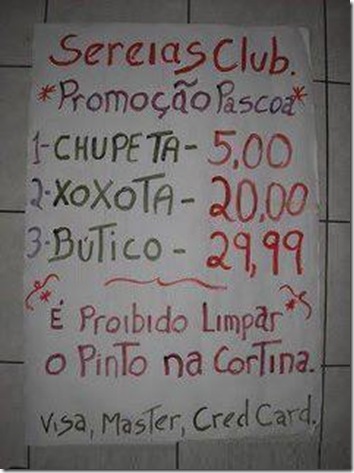 Sereias Club.
*Promoção Pascoa*
1-CHUPETA- 5,00
2-XOXOTA- 20,00
3-BUTICO- 29,99
*É Proibido Limpar*
o Pinto na Cortina.
Visa, Master, Cred Card.